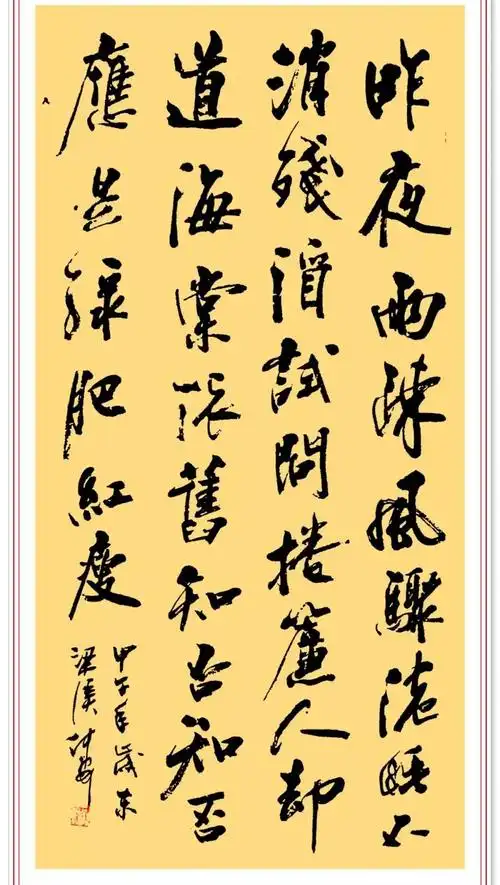 昨夜雨疎風驟濃睡不
消殘酒試問捲簾人却
道海棠依舊知否知否
應是綠肥紅瘦
甲子年歲末
梁溪